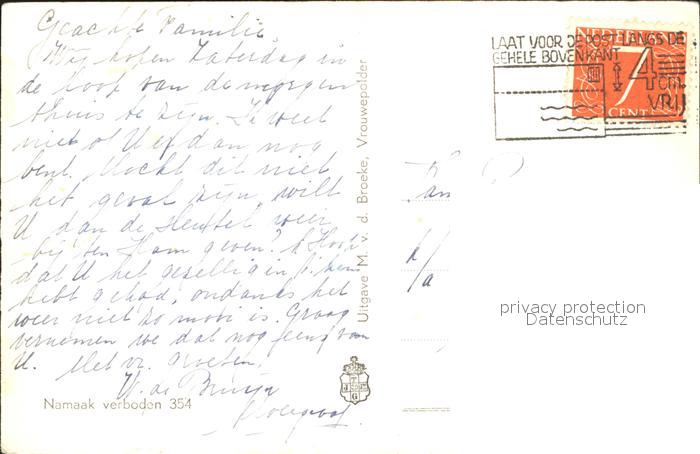 Geachte Familie,
Wij hopen Zaterdag in
de loop van de morgen
thuis te zijn. Ik weet
niet of U er dan nog
bent. Mocht dit niet
het geval zijn, wilt
U dan de sleutel weer
bij ten Ham geven? Ik Hoop
dat U het gezellig in
hebt gehad, ondanks het
weer niet zo mooi is. Graag
vernemen we dat nog eens van
U. Met vr. groeten.
de Bruijn
Namaak verboden 354
Uitgave M. v. d. Broeke, Vrouwepolder
LAAT VOOR DE POST LANGS DE
GEHELE BOVENKANT
4 cm.
VRIJ
NEDERLAND
7
CENT
Fam
privacy protection
Datenschutz